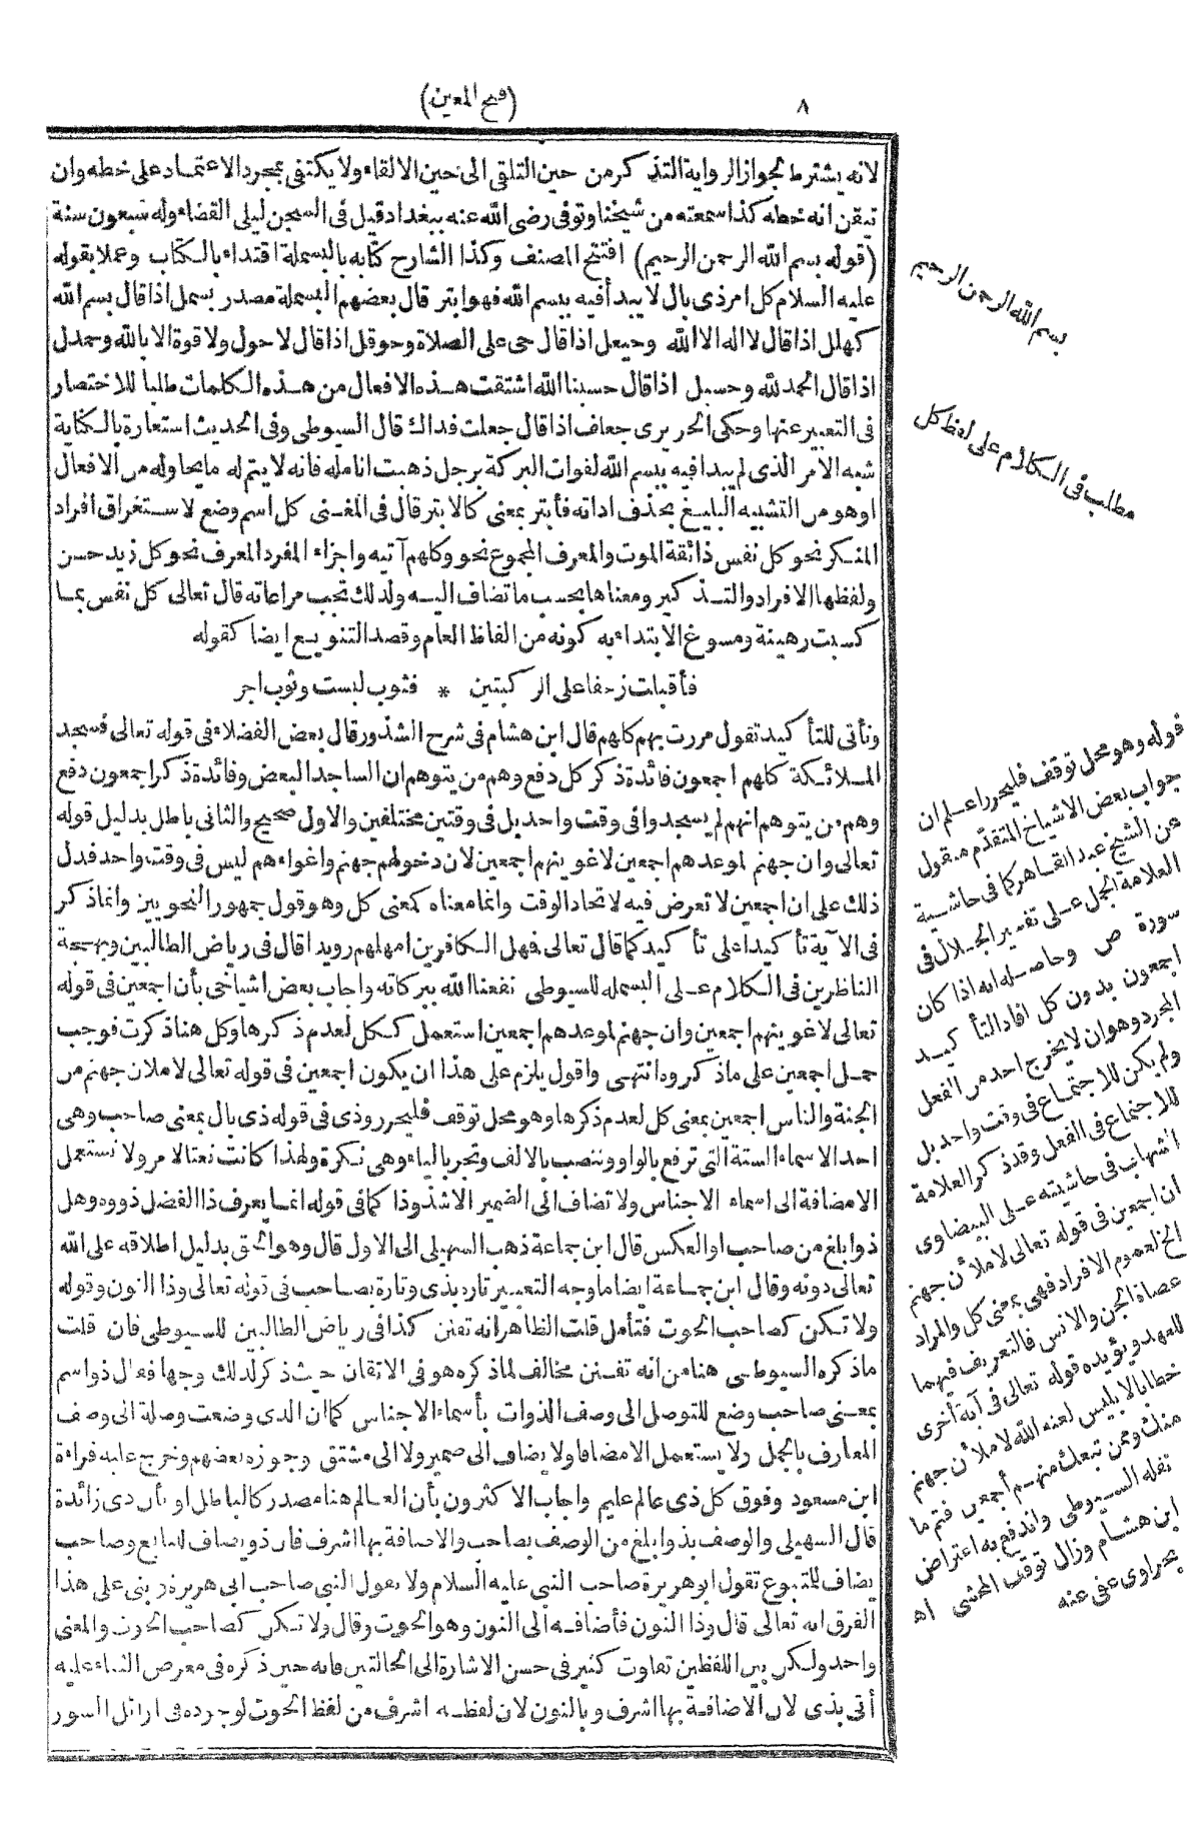 ٨
(فتح المعين)
لانه يشترط لجواز الرواية التذكر من حين التلقي الى حين الالقاء ولا يكتفى بمجرد الاعتماد على خطه وان
تيقن انه خطه كذا سمعته من شيخنا وتوفى رضى الله عنه ببغداد قيل فى السجن ليلى القضاء وله سبعون سنة
(قوله بسم الله الرحمن الرحيم) افتتح المصنف وكذا الشارح كتابه بالبسملة اقتداء بالكتاب وعملا بقوله
عليه السلام كل امر ذى بال لا يبدأ فيه ببسم الله فهو ابتر قال بعضهم البسملة مصدر بسمل اذا قال بسم الله
كهلل اذا قال لا اله الا الله وحيعل اذا قال حى على الصلاة وحوقل اذا قال لا حول ولا قوة الا بالله وحمدل
اذا قال الحمد لله وحسبل اذا قال حسبنا الله اشتقت هذه الافعال من هذه الكلمات طلبا للاختصار
فى التعبير عنها وحكى الحريرى جعلف اذا قال جعلت فداك قال السيوطى وفى الحديث استعارة بالكناية
شبه الامر الذى لم يبدا فيه ببسم الله لفوات البركة برجل ذهبت انامله فانه لا يتم له ما يحاوله من الافعال
اوهو من التشبيه البليغ بحذف اداته فأبتر بمعنى كالابتر قال فى المغنى كل اسم وضع لاستغراق افراد
المنكر نحو كل نفس ذائقة الموت والمعرف المجموع نحو وكلهم آتيه واجزاء المفرد المعرف نحو كل زيد حسن
ولفظها الافراد والتذكير ومعناها بحسب ما تضاف اليه ولذلك تجب مراعاته قال تعالى كل نفس بما
كسبت رهينة ومسوغ الابتداء به كونه من الفاظ العام وقصد التنويع ايضا كقوله
فأقبلت زحفا على الركبتين * فثوب لبست وثوب اجر
وتأتى للتأكيد تقول مررت بهم كلهم قال ابن هشام فى شرح الشذور قال بعض الفضلاء فى قوله تعالى فسجد
الملائكة كلهم اجمعون فائدة ذكر كل دفع وهم من يتوهم ان الساجد البعض وفائدة ذكر اجمعون دفع
وهم من يتوهم انهم لم يسجدوا فى وقت واحد بل فى وقتين مختلفين والاول صحيح والثانى باطل بدليل قوله
تعالى وان جهنم لموعدهم اجمعين لاغوينهم اجمعين لان دخولهم جهنم واغواءهم ليس فى وقت واحد فدل
ذلك على ان اجمعين لا تعرض فيه لاتحاد الوقت وانما معناه كمعنى كل وهو قول جمهور النحويين وانما ذكر
فى الآية تأكيدا على تأكيد كما قال تعالى فمهل الكافرين امهلهم رويدا قال فى رياض الطالبين وبهجة
الناظرين فى الكلام على البسمله للسيوطى نفعنا الله ببركاته واجاب بعض اشياخى بأن اجمعين فى قوله
تعالى لاغوينهم اجمعين وان جهنم لموعدهم اجمعين استعمل ككل لعدم ذكرها وكل هنا ذكرت فوجب
حمل اجمعين على ما ذكروه انتهى واقول يلزم على هذا ان يكون اجمعين فى قوله تعالى لاملان جهنم من
الجنة والناس اجمعين بمعنى كل لعدم ذكرها وهو محل توقف فليحرر وذى فى قوله ذى بال بمعنى صاحب وهى
احد الاسماء الستة التى ترفع بالواو وتنصب بالالف وتجر بالياء وهى نكرة ولهذا كانت نعتا لامر ولا تستعمل
الا مضافة الى اسماء الاجناس ولا تضاف الى الضمير الا شذوذا كما فى قوله انما يعرف ذا الفضل ذووه وهل
ذو ابلغ من صاحب او العكس قال ابن جماعة ذهب السهيلى الى الاول قال وهو الحق بدليل اطلاقه على الله
تعالى دونه وقال ابن جماعة ايضا ما وجه التعبير تارة بذى وتارة بصاحب فى قوله تعالى وذا النون وقوله
ولا تكن كصاحب الحوت فتأمل قلت الظاهر انه تفنن كذا فى رياض الطالبين للسيوطى فان قلت
ما ذكره السيوطى هنا من انه تفنن مخالف لما ذكره هو فى الاتقان حيث ذكر لذلك وجها فقال ذو اسم
بمعنى صاحب وضع للتوصل الى وصف الذوات بأسماء الاجناس كما ان الذى وضعت وصلة الى وصف
المعارف بالجمل ولا يستعمل الا مضافا ولا يضاف الى ضمير ولا الى مشتق وجوزه بعضهم وخرج عليه قراءة
ابن مسعود وفوق كل ذى عالم عليم واجاب الاكثرون بأن العالم هنا مصدر كالباطل او بأن ذى زائدة
قال السهيلى والوصف بذو ابلغ من الوصف بصاحب والاضافة بها اشرف فان ذو يضاف للتابع وصاحب
يضاف للمتبوع تقول ابو هريرة صاحب النبى عليه السلام ولا يقول النبى صاحب ابى هريرة وبنى على هذا
الفرق انه تعالى قال وذا النون فأضافه الى النون وهو الحوت وقال ولا تكن كصاحب الحوت والمعنى
واحد ولكن بين اللفظين تفاوت كثير فى حسن الاشارة الى الحالتين فانه حين ذكره فى معرض الثناء عليه
أتى بذى لان الاضافة بها اشرف وبالنون لان لفظه اشرف من لفظ الحوت لوجوده فى اوائل السور
بسم الله الرحمن الرحيم
مطلب فى الكلام على لفظ كل
قوله وهو محل توقف فليحرر اعلم ان
جواب بعض الاشياخ المتقدم منقول
عن الشيخ عبد القاهر كما فى حاشية
العلامة الجمل على تفسير الجلال فى
سورة ص وحاصله انه اذا كان
اجمعون بدون كل افاد التأكيد
المجرد وهو ان لا يخرج احد من الفعل
ولم يكن للاجتماع فى وقت واحد بل
للاجتماع فى الفعل وقد ذكر العلامة
الشهاب فى حاشيته على البيضاوى
ان اجمعين فى قوله تعالى لاملأن جهنم
الخ لعموم الافراد فهى بمعنى كل والمراد
عصاة الجن والانس فالتعريف فيهما
للعهد ويؤيده قوله تعالى فى آية أخرى
خطابا لابليس لعنه الله لاملأن جهنم
منك وممن تبعك منهم أجمعين فتم ما
نقله السيوطى واندفع به اعتراض
ابن هشام وزال توقف المحشى اه
بحراوى عفى عنه